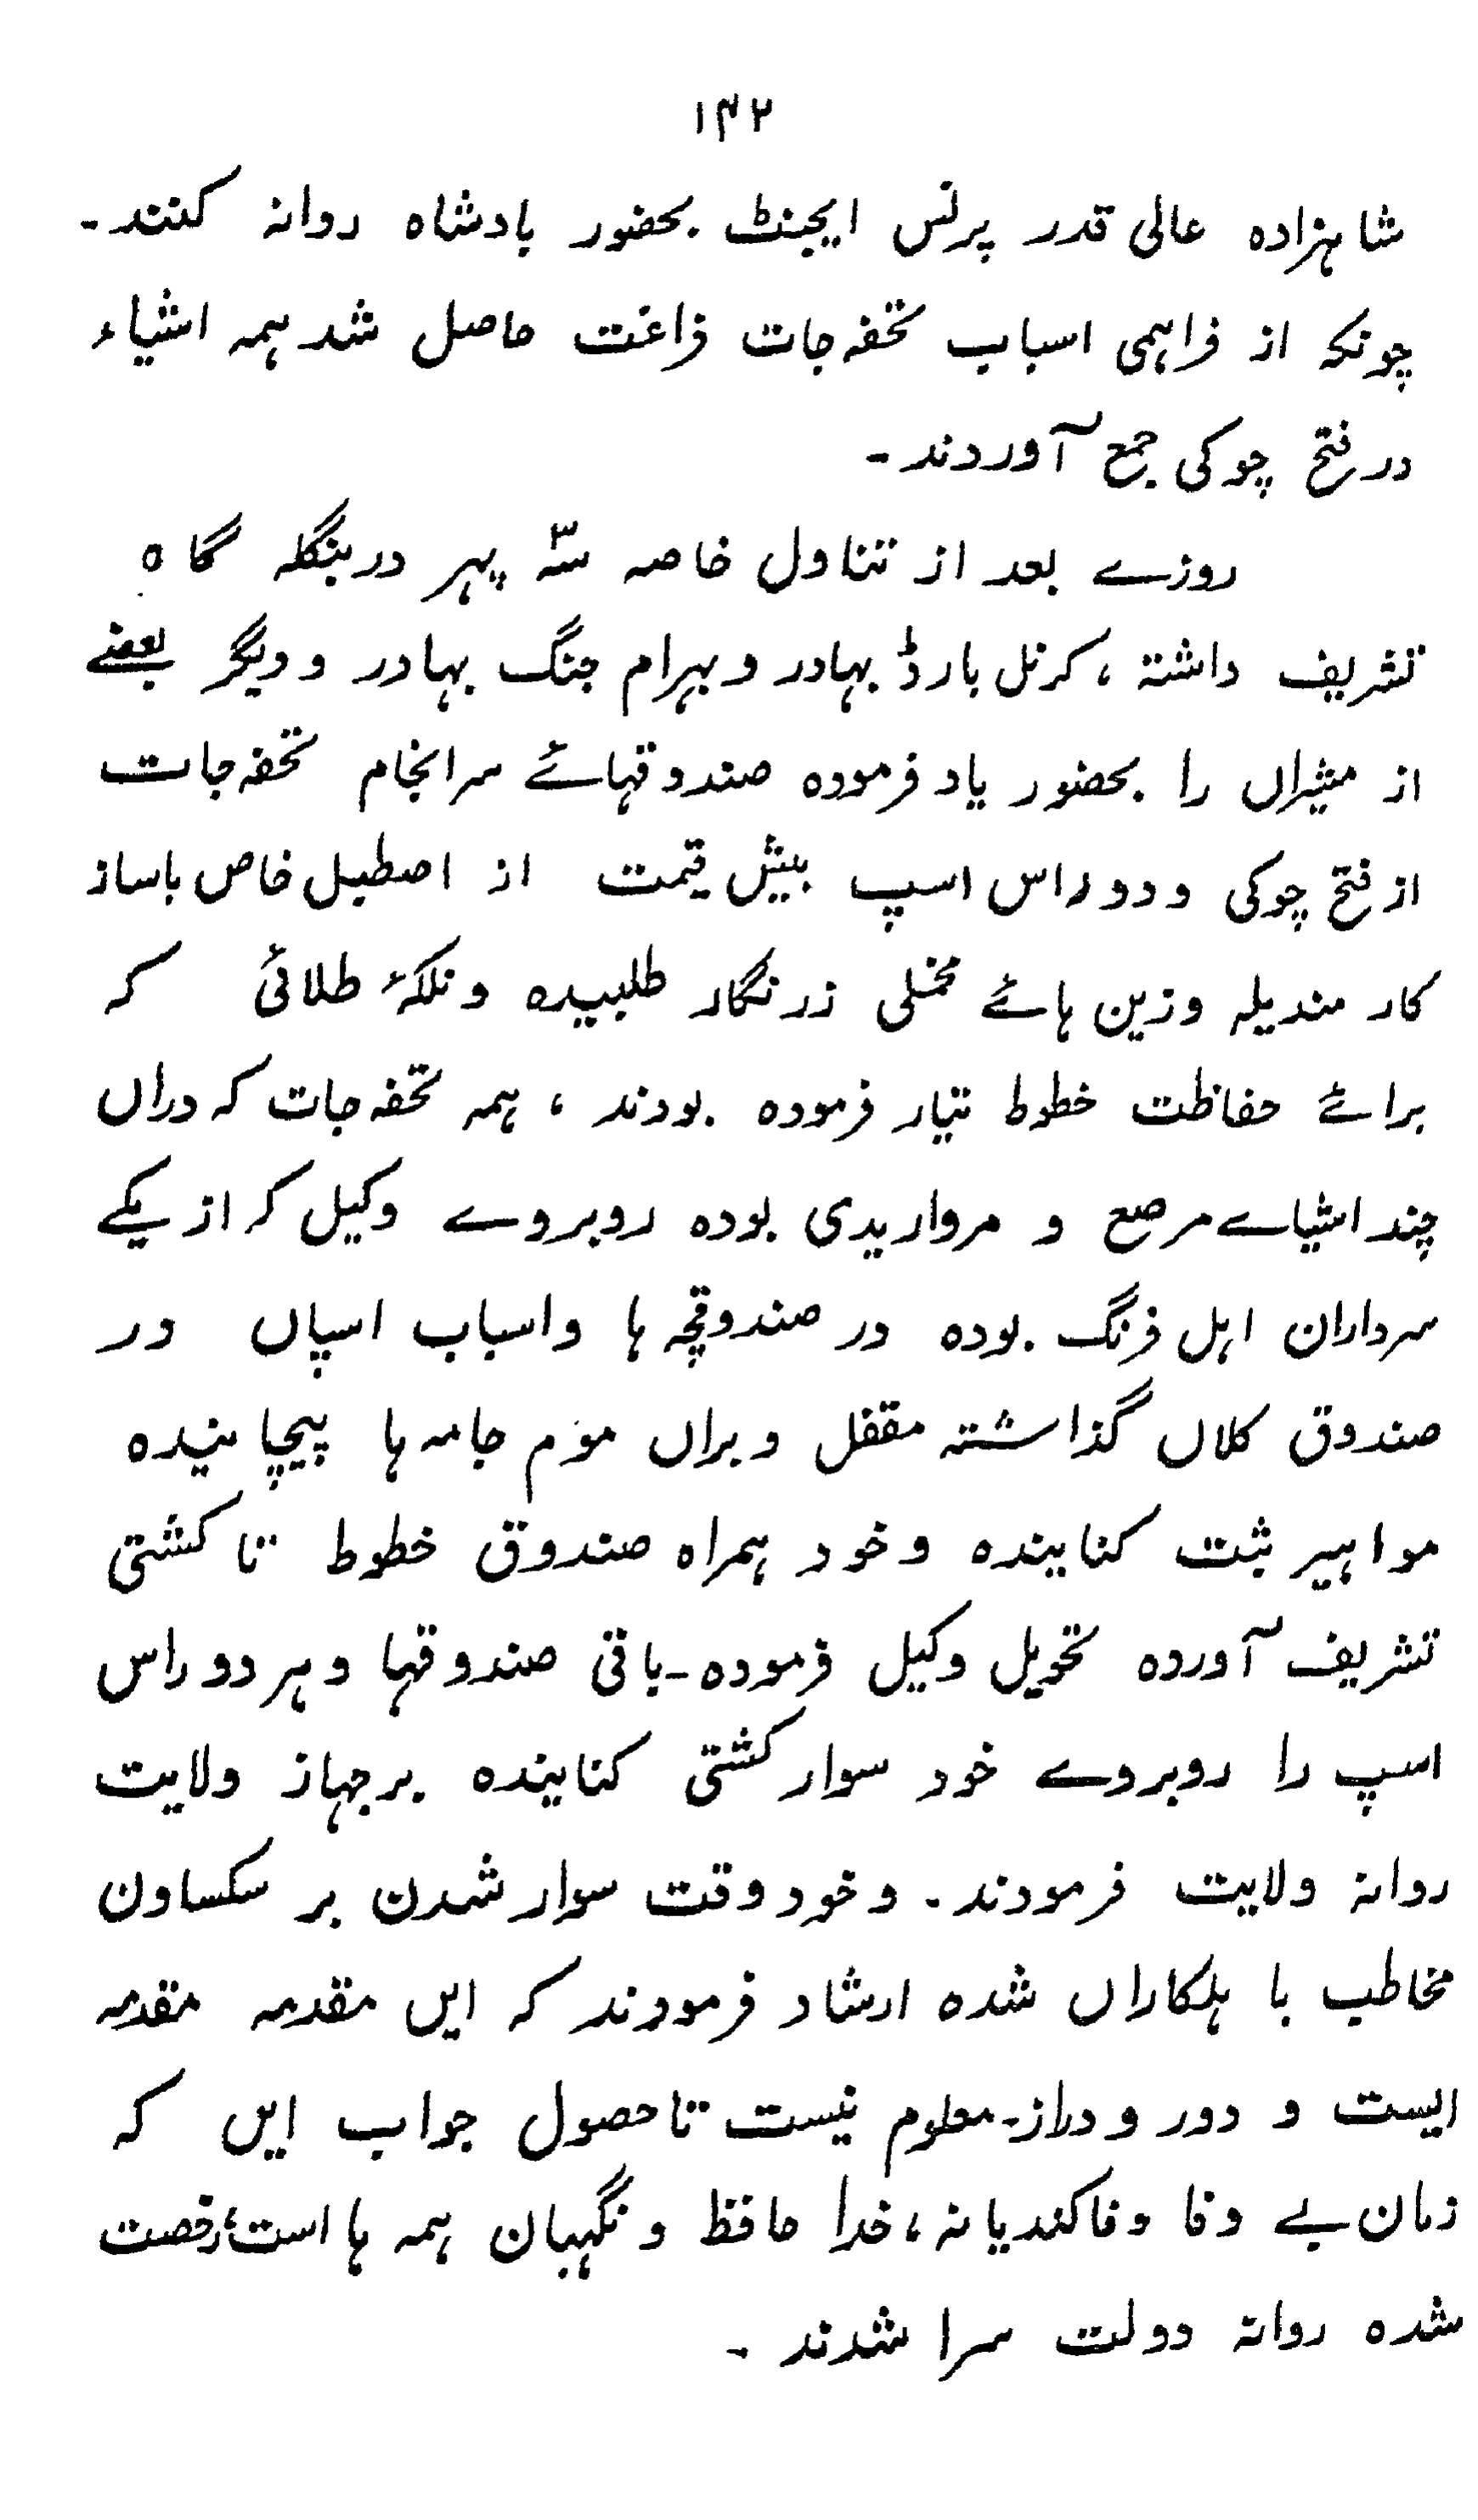 ۱۴۲
شاہزادہ عالی قدر پرنس ایجنٹ بحضور بادشاہ روانہ کنند۔
چونکہ از فراہمی اسباب تحفہ جات فراغت حاصل شد ہمہ اشیاء
در فتح چوکی جمع آوردند۔
روزے بعد از تناول خاصہ سہ پہر در بنگلہ گاہ
تشریف داشتہ، کرنل بارڈ بہادر و بہرام جنگ بہادر و دیگر بعضے
از مشیراں را بحضور یاد فرمودہ صندوقہائے سرانجام تحفہ جات
از فتح چوکی و دو راس اسپ بیش قیمت از اصطبل خاص باساز
کار مندیلہ و زین ہائے مخملی زرنگار طلبیدہ و نلکۂ طلائی کہ
برائے حفاظت خطوط تیار فرمودہ بودند، ہمہ تحفہ جات کہ دراں
چند اشیاے مرصع و مرواریدی بودہ روبروے وکیل کہ از یکے
سرداران اہل فرنگ بودہ در صندوقچہ ہا و اسباب اسپاں در
صندوق کلاں گذاشتہ مقفل و براں موم جامہ ہا پیچانیدہ
مواہیر ثبت کنانیدہ و خود ہمراہ صندوق خطوط تا کشتی
تشریف آوردہ تحویل وکیل فرمودہ۔ باقی صندوقہا و ہر دو راس
اسپ را روبروے خود سوار کشتی کنانیدہ بر جہاز ولایت
روانہ ولایت فرمودند۔ و خود وقت سوار شدن بر سکساون
مخاطب با ہلکاراں شدہ ارشاد فرمودند کہ ایں مقدمہ مقدمہ
ایست و دور و دراز۔ معلوم نیست تا حصول جواب ایں کہ
زمان بے وفا وفا کند یا نہ، خدا حافظ و نگہبان ہمہ ہا است، رخصت
شدہ روانہ دولت سرا شدند۔